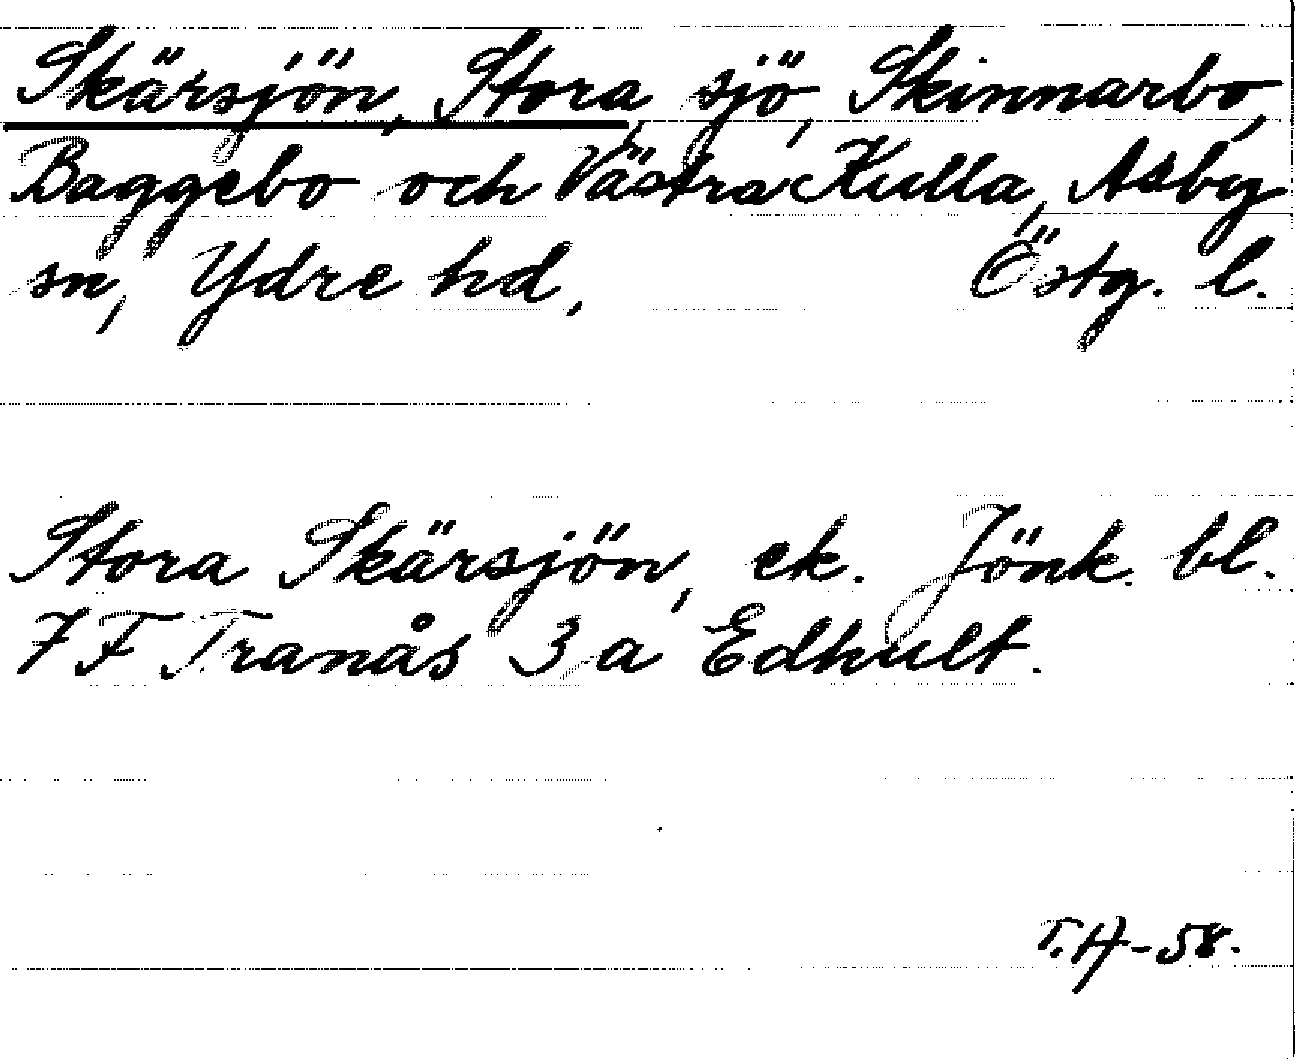 Skärsjön, Stora, sjö, Skinnarbo,
Baggebo och Västra Kulla, Asby
sn, Ydre hd, Östg. l.
Stora Skärsjön, ek. Jönk. bl.
7 F Tranås 3 a Edhult.
T.H-58.